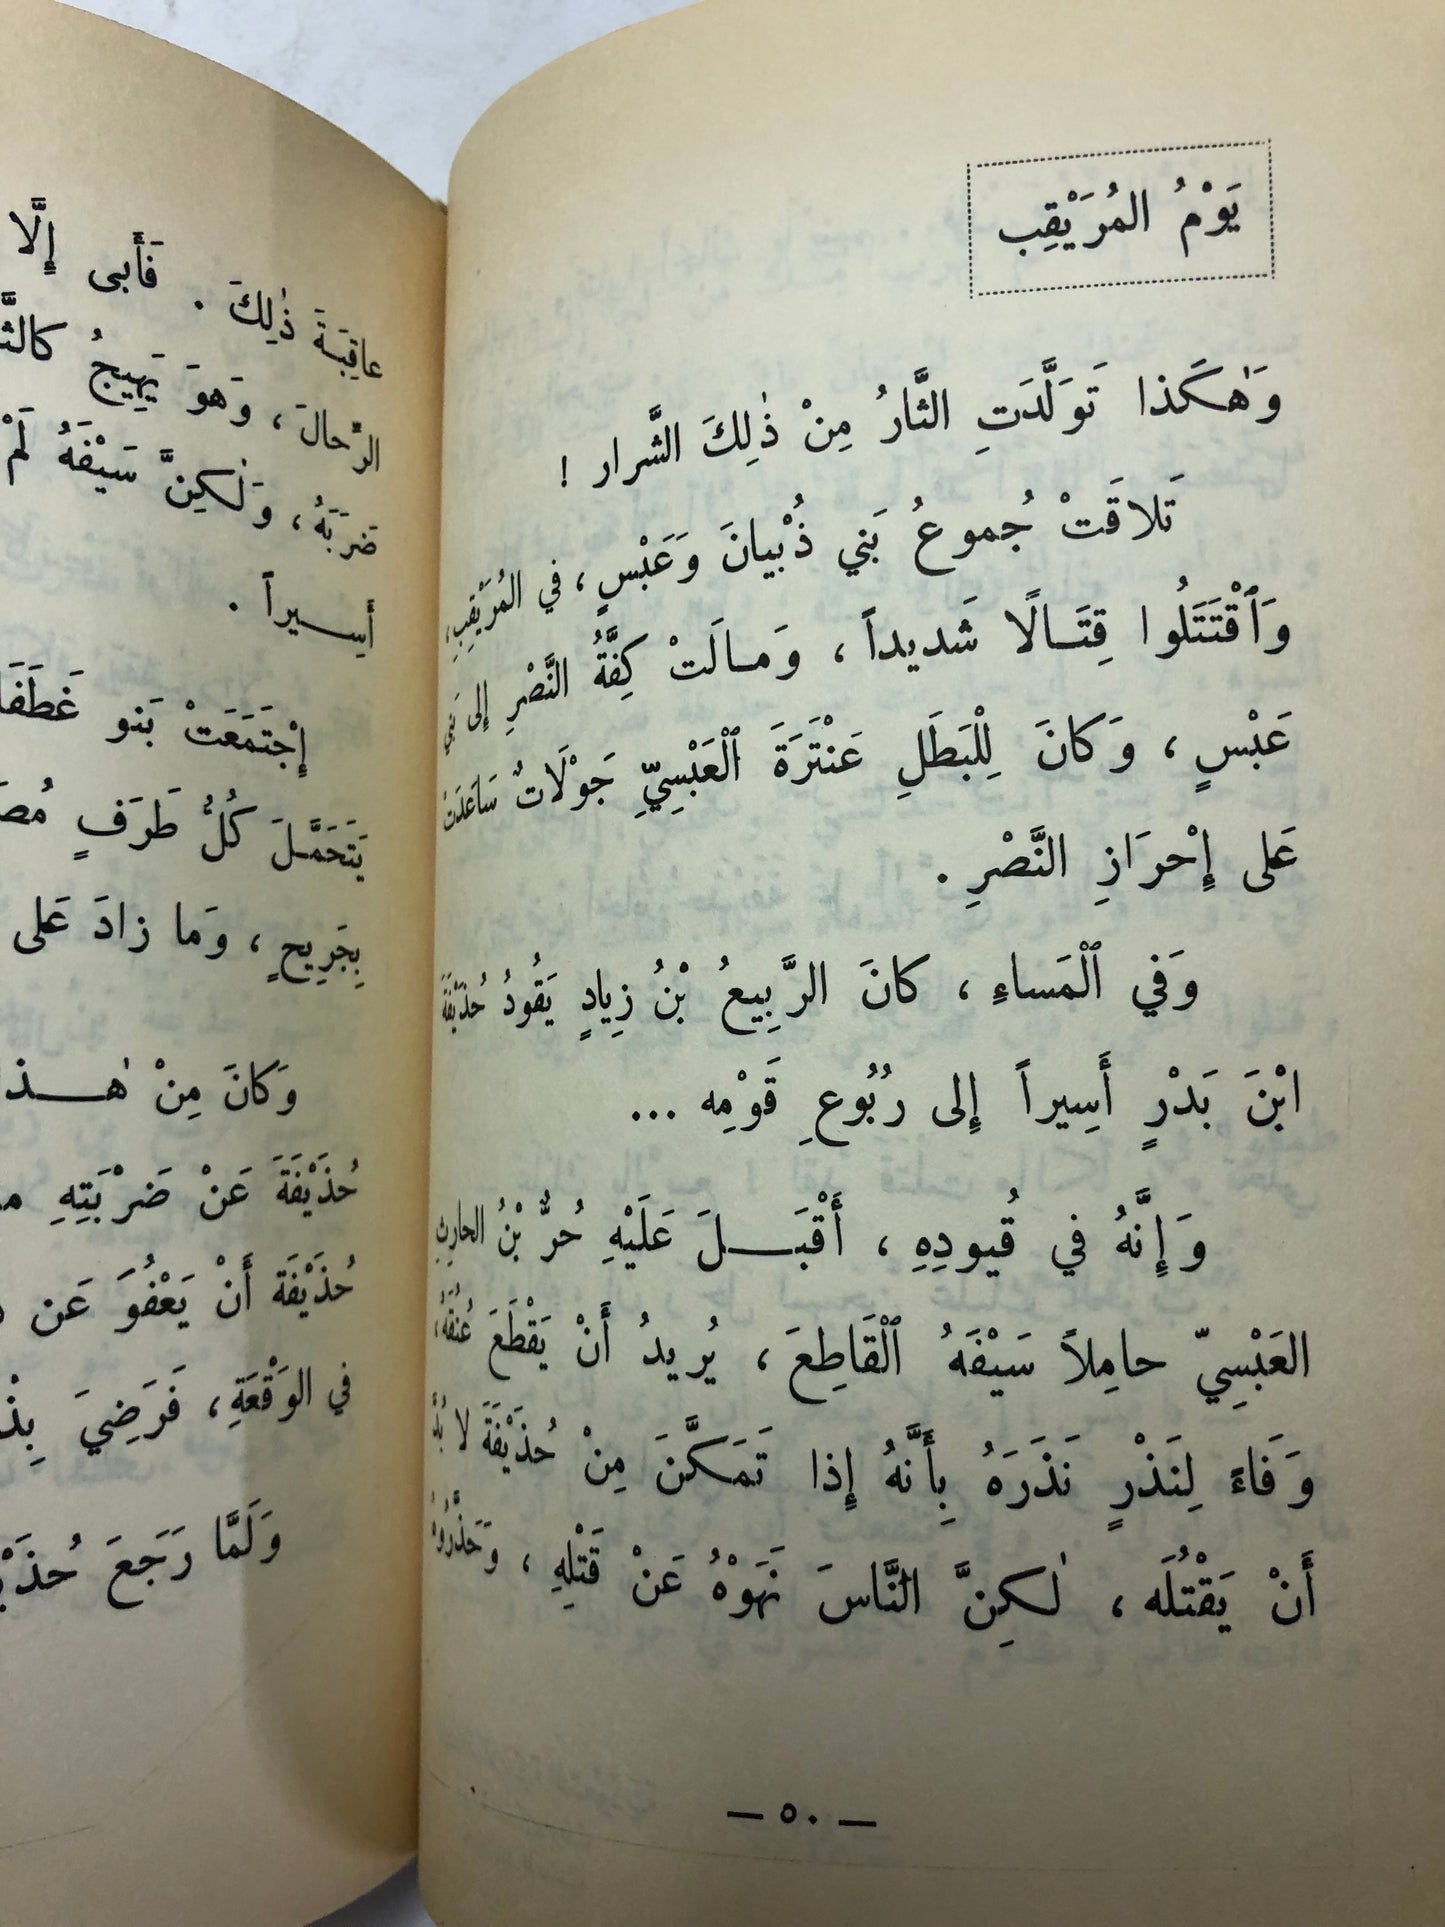 يَوْمُ المُرَيْقِب
وَهٰكَذا تَوَلَّدَتِ النَّارُ مِنْ ذٰلِكَ الشَّرار !
تَلاقَتْ جُموعُ بَني ذُبْيانَ وَعَبْسٍ ، في المُرَيْقِبِ،
وَٱقْتَتَلُوا قِتَـالًا شَديداً ، وَمـالَتْ كِفَّةُ النَّصْرِ إلى بَني
عَبْسٍ ، وَكانَ لِلْبَطَلِ عَنْتَرَةَ ٱلْعَبْسِيِّ جَوْلَاتٌ سَاعَدَتْ
عَلى إِحْرَازِ النَّصْرِ .
وَفي ٱلْمَساءِ ، كانَ الرَّبِيعُ بْنُ زِيادٍ يَقُودُ حُذَيْفَةَ
ابْنَ بَدْرٍ أَسِيراً إِلى رُبُوعِ قَوْمِه ...
وَإِنَّهُ في قُيودِهِ ، أَقْبَـــلَ عَلَيْهِ حُرُّ بْنُ الحارِثِ
العَبْسِيّ حامِلاً سَيْفَهُ ٱلْقَاطِعَ ، يُريدُ أَنْ يَقْطَعَ عُنُقَهُ،
وَفاءً لِنَذْرٍ نَذَرَهُ بِأَنَّهُ إِذا تَمَكَّنَ مِنْ حُذَيْفَةَ لا بُدَّ
أَنْ يَقْتُلَه ، لٰكِنَّ النَّاسَ نَهَوْهُ عَنْ قَتْلِهِ ، وَحَذَّرُوهُ
— ٥٠ —
عاقِبَةَ ذٰلِكَ . فَأَبى إِلَّا
الرِّحالَ ، وَهوَ يَهِيجُ
ضَرَبَهُ ، وَلٰكِنَّ سَيْفَهُ لَمْ
أَسِـيراً .
إِجْتَمَعَتْ بَنو
يَتَحَمَّـلَ كُلُّ طَرَفٍ
بِجَرِيحٍ ، وَما زادَ عَلى
وَكانَ مِنْ
حُذَيْفَةَ عَنْ ضَرْبَتِهِ
حُذَيْفَة أَنْ يَعْفُوَ عَن
في الوَقْعَةِ ، فَرَضِيَ
وَلَمَّا رَجَعَ